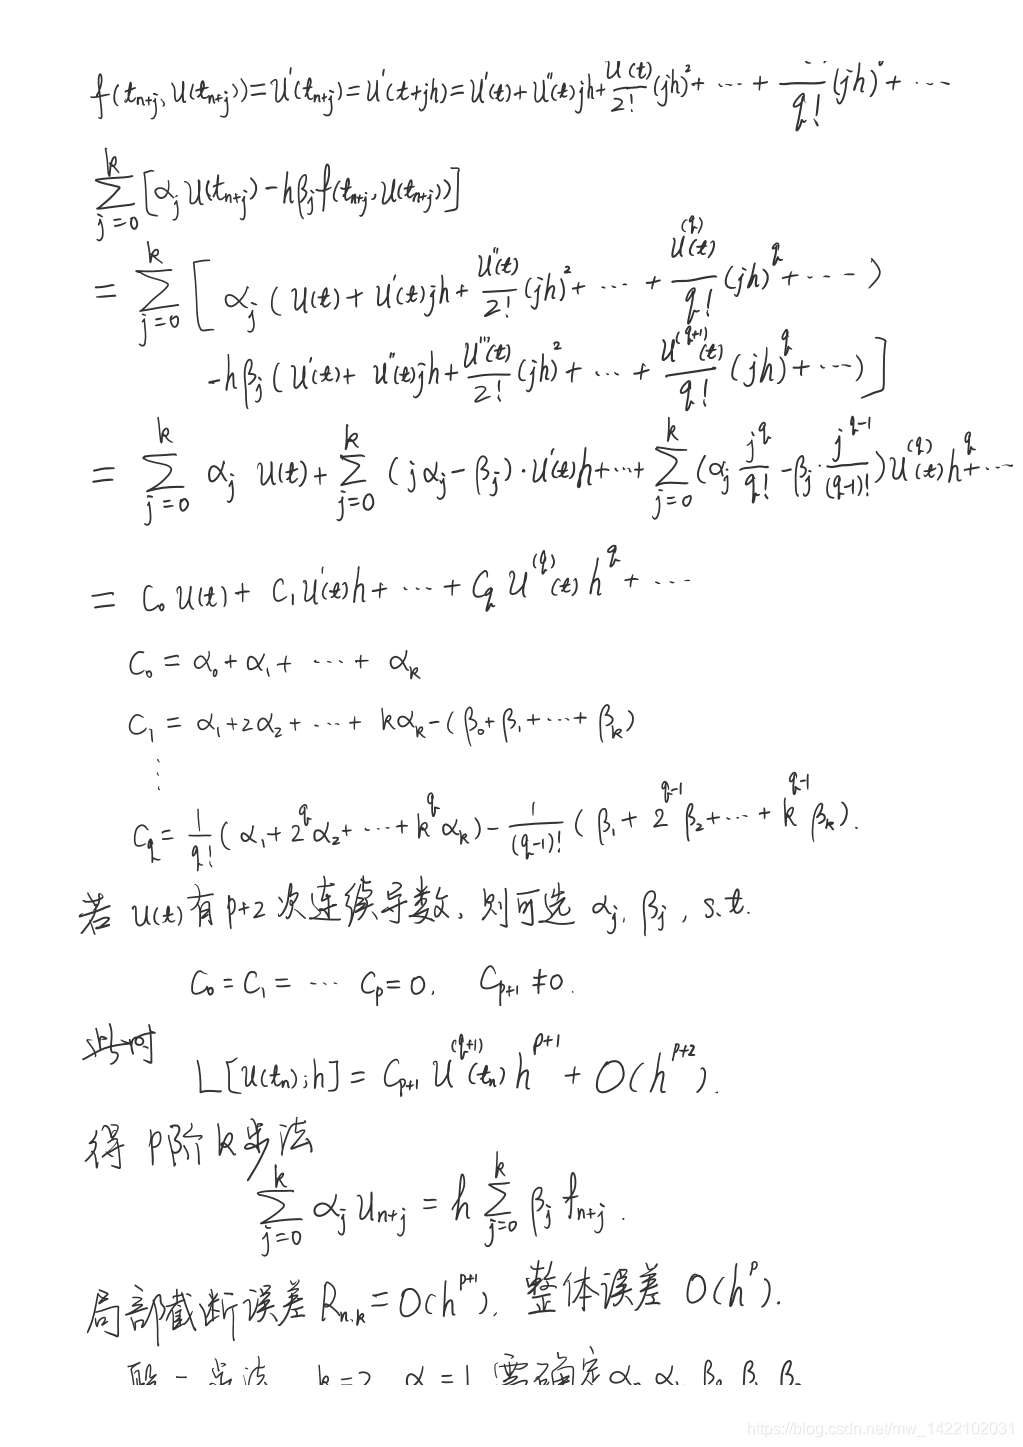 f(t_{n+j}, u(t_{n+j})) = u'(t_{n+j}) = u'(t+jh) = u'(t) + u''(t)jh + \frac{u(t)}{2!}(jh)^2 + ⋯ + \frac{}{q!}(jh) + ⋯
\sum_{j=0}^{k} [α_j u(t_{n+j}) - hβ_j f(t_{n+j}, u(t_{n+j}))]
= \sum_{j=0}^{k} [ α_j ( u(t) + u'(t)jh + \frac{u''(t)}{2!}(jh)^2 + ⋯ + \frac{u^{(q)}(t)}{q!}(jh)^q + ⋯ )
- hβ_j ( u'(t) + u''(t)jh + \frac{u'''(t)}{2!}(jh)^2 + ⋯ + \frac{u^{(q+1)}(t)}{q!}(jh)^q + ⋯ ) ]
= \sum_{j=0}^{k} α_j u(t) + \sum_{j=0}^{k} (jα_j - β_j)·u'(t)h + ⋯ + \sum_{j=0}^{k} (α_j \frac{j^q}{q!} - β_j·\frac{j^{q-1}}{(q-1)!}) u^{(q)}(t) h^q + ⋯
= C_0 u(t) + C_1 u'(t)h + ⋯ + C_q u^{(q)}(t) h^q + ⋯
C_0 = α_0 + α_1 + ⋯ + α_k
C_1 = α_1 + 2α_2 + ⋯ + kα_k - (β_0 + β_1 + ⋯ + β_k)
⋮
C_q = \frac{1}{q!}(α_1 + 2^q α_2 + ⋯ + k^q α_k) - \frac{1}{(q-1)!}(β_1 + 2^{q-1} β_2 + ⋯ + k^{q-1} β_k).
若 u(t) 有 p+2 次连续导数, 则可选 α_j, β_j, s.t.
C_0 = C_1 = ⋯ C_p = 0, C_{p+1} ≠ 0.
此时
L[u(t_n); h] = C_{p+1} u^{(q+1)}(t_n) h^{p+1} + O(h^{p+2}).
得 p阶 k步法
\sum_{j=0}^{k} α_j u_{n+j} = h \sum_{j=0}^{k} β_j f_{n+j}.
局部截断误差 R_{n,k} = O(h^{p+1}), 整体误差 O(h^p).
步法 k=2 α =1 需确定 α α β β β
https://blog.csdn.net/mw_1422102031